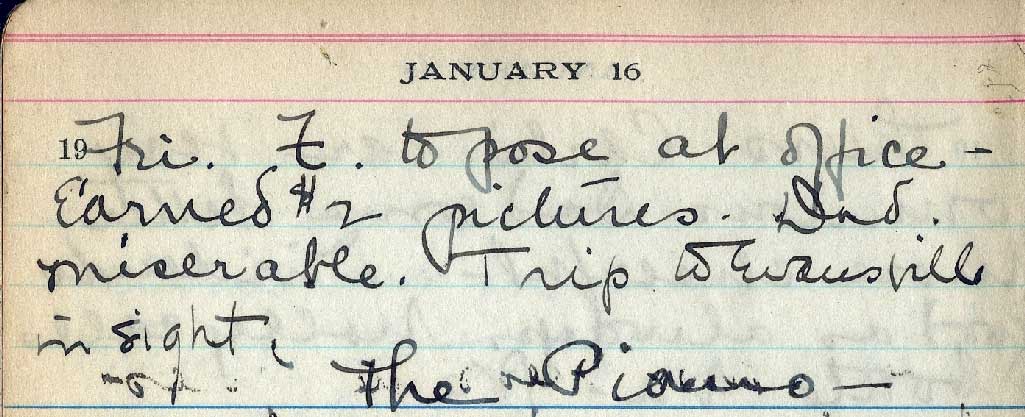 JANUARY 16
19 Fri. F. to pose at office -
Earned $2 pictures. Dad.
miserable. Trip to Evansville
in sight,
The Piano —